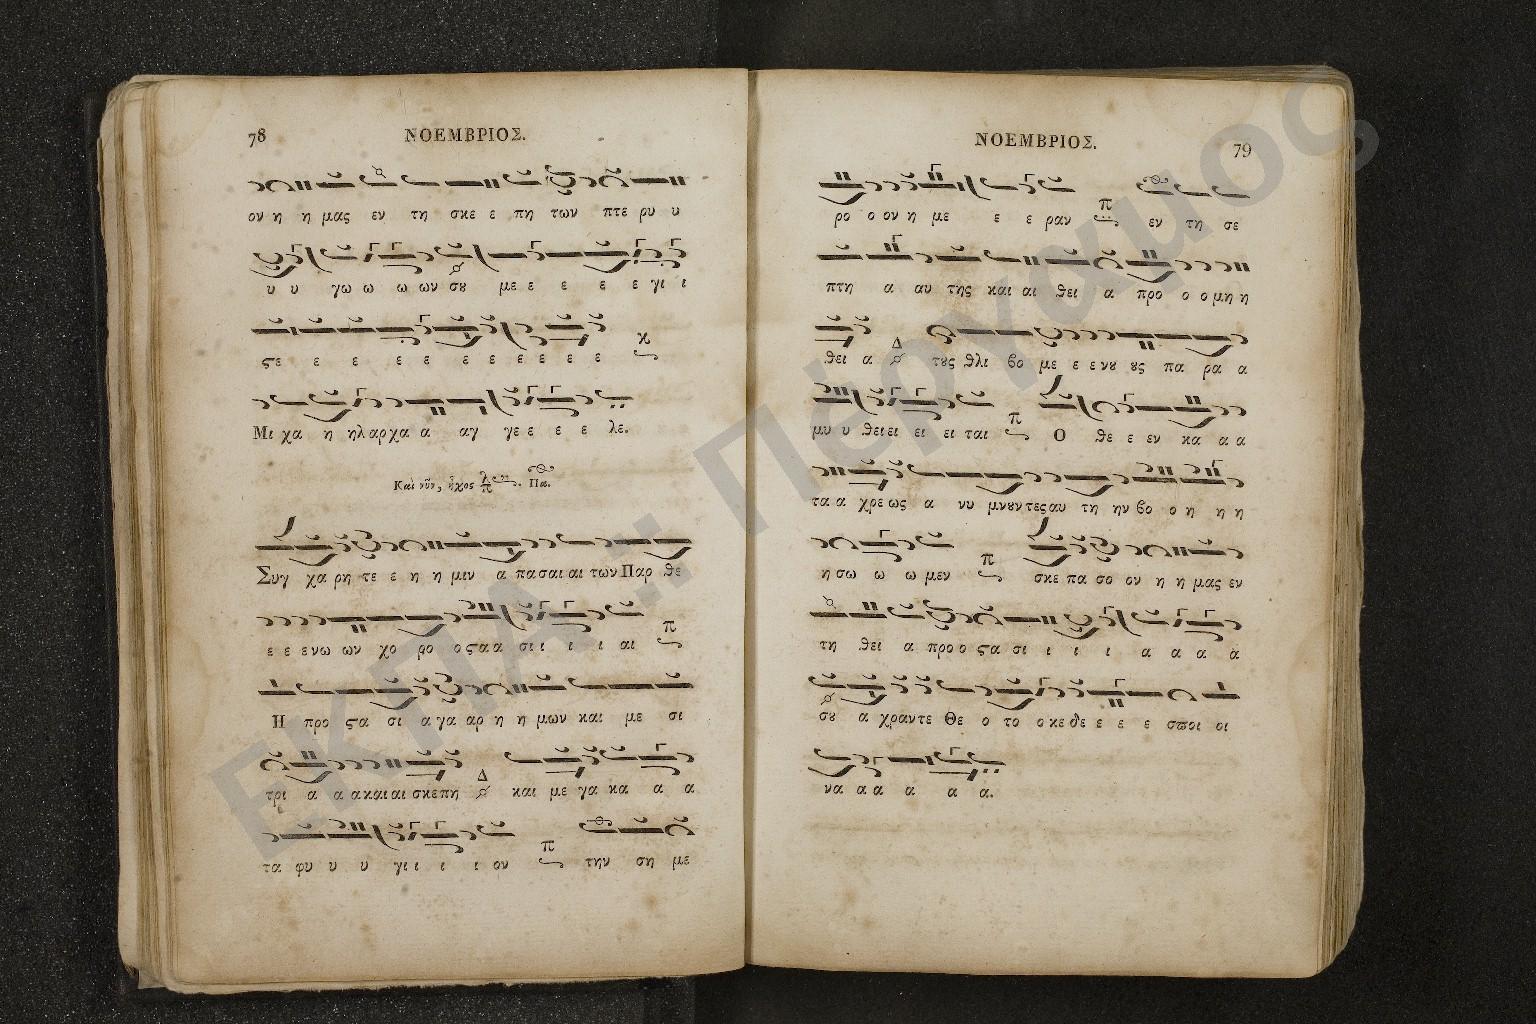 78
ΝΟΕΜΒΡΙΟΣ.
ον η η μας εν τη σκε ε πη των πτε ρυ υ
υ υ γω ω ω ων σȣ με ε ε ε ε γι ι
ϛε ε ε ε ε ε ε ε ε ε ε
Μι χα η ηλ αρχα α αγ γε ε ε ε λε.
Καὶ νῦν, ἦχος Πα.
Συγ χα ρη τε ε η η μιν α πασαι αι των Παρ θε
ε ε ε νω ων χο ρο ο ϛα α σι ι ι ι αι π
Η προ ϛα σι α γα αρ η η μων και με σι
τρι α α α και αι σκεπη Δ και με γα κα α α
τα φυ υ υ γι ι ι ι ον π την ση με
ΝΟΕΜΒΡΙΟΣ.
79
ρο ο ον η με ε ε ραν π εν τη σε
πτη α αυ της και αι θει α προ ο ο μη η
θει α Δ τȣς θλι βο με ε ε νȣ ȣς πα ρα α
μυ υ θει ει ει ει ται π Ο θε ε εν κα α α
τα α χρε ως α νυ μνȣντες αυ τη ην βο ο η η η
η σω ω ω μεν π σκε πα σο ον η η μας εν
τη θει α προ ο ϛα σι ι ι ι α α α α
σȣ α χραντε Θε ο το ο κε δε ε ε ε σποι οι
να α α α α α.
ΕΚΠΑ :: Πέργαμος